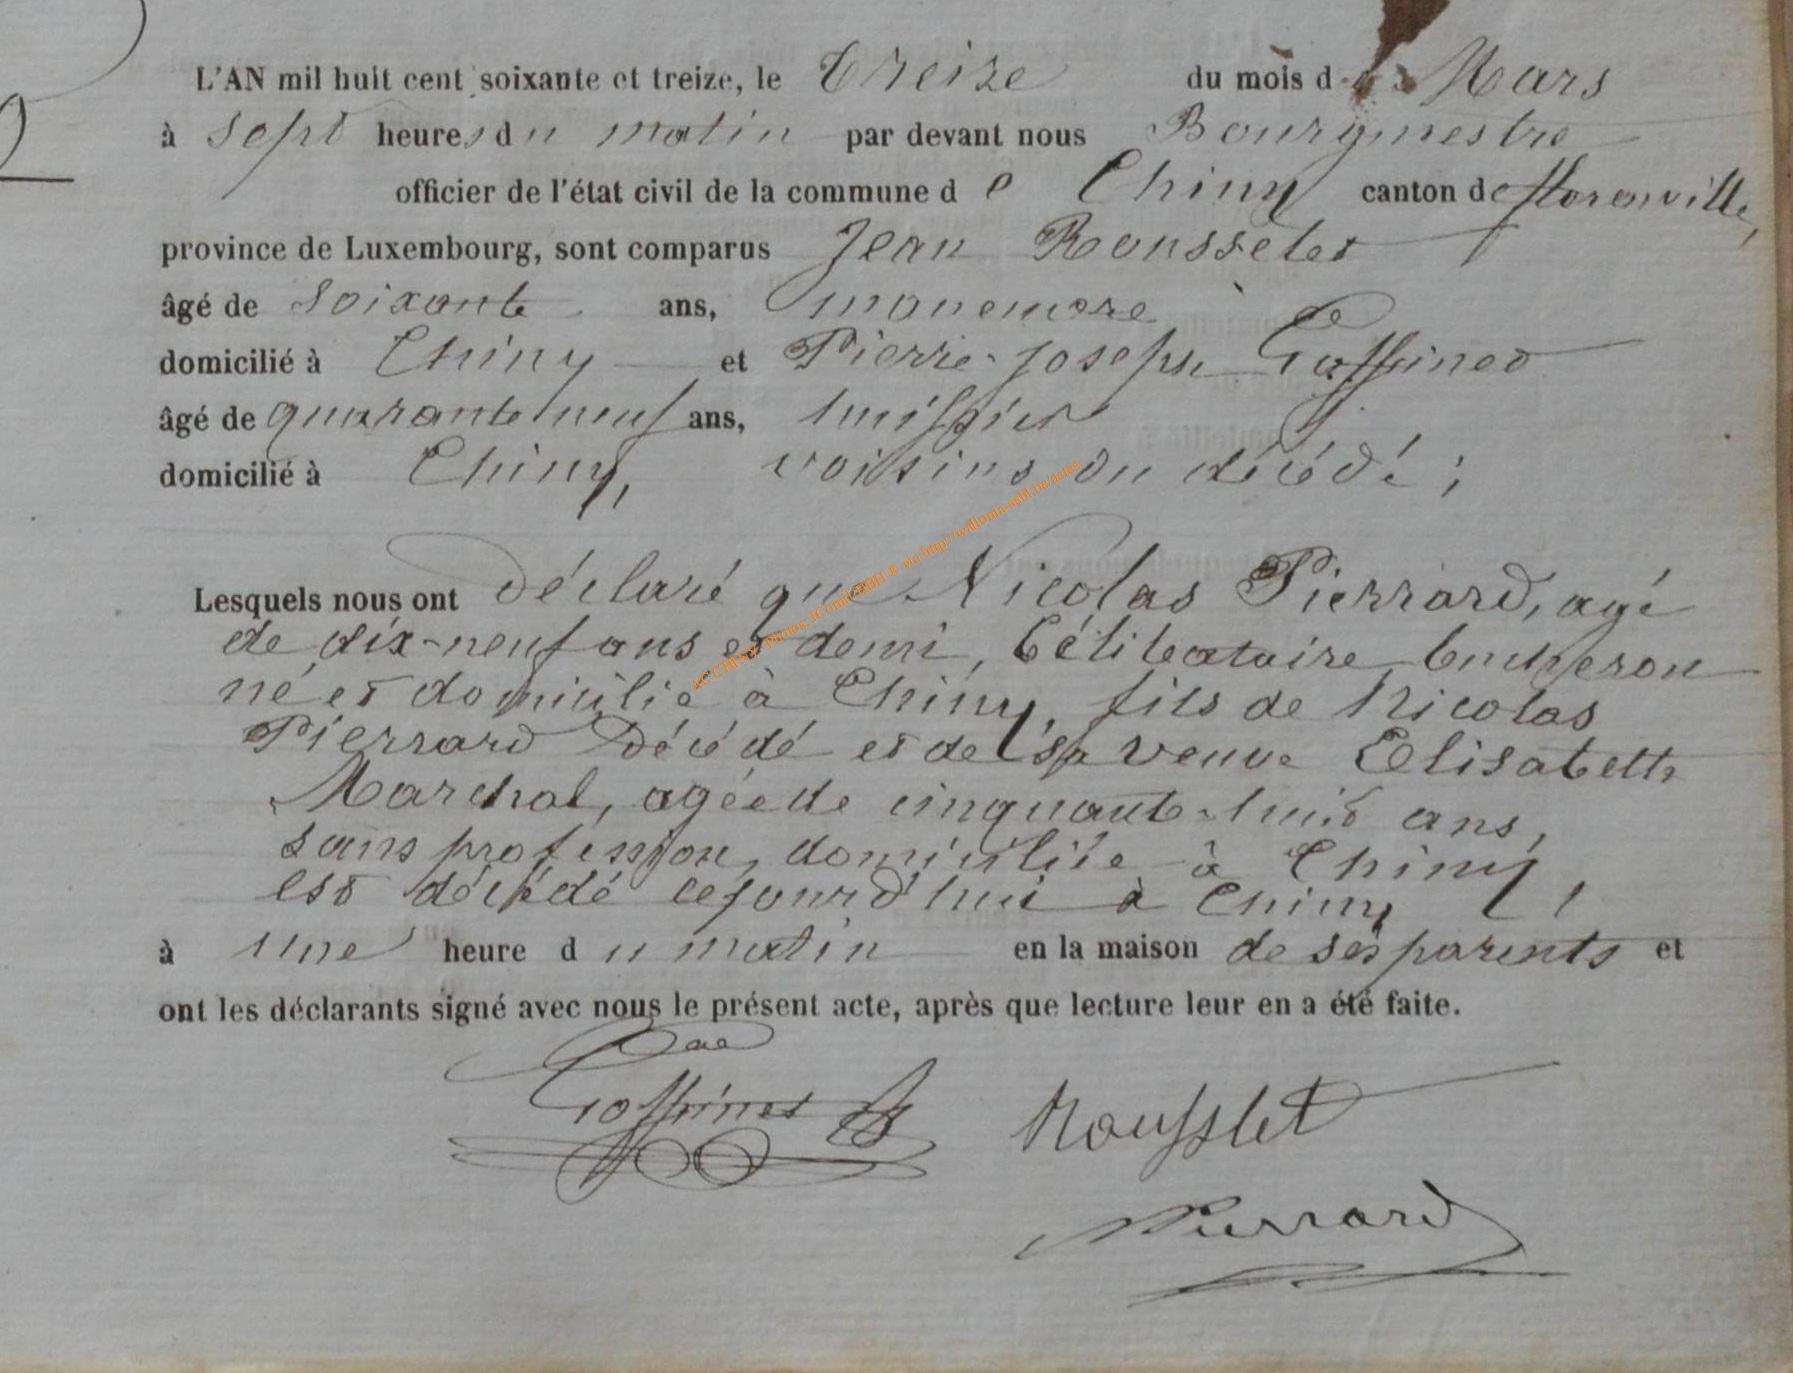 L'AN mil huit cent soixante et treize, le treize du mois de Mars
à sept heures du matin par devant nous Bourgmestre
officier de l'état civil de la commune de Chiny canton de Florenville,
province de Luxembourg, sont comparus Jean Rousselet
âgé de soixante ans,
domicilié à Chiny et Pierre-Joseph Goffinet
âgé de quarante neuf ans, huissier
domicilié à Chiny, voisins du décédé;
Lesquels nous ont déclaré que Nicolas Pierrard, agé
de dix-neuf ans et demi, Célibataire bucheron
né et domicilié à Chiny, fils de Nicolas
Pierrard Décédé et de sa veuve Elisabeth
Marchal, agée de cinquante-huit ans,
sans profession, domiciliée à Chiny,
est décédé cejourd'hui à Chiny,
à une heure du matin en la maison de ses parents et
ont les déclarants signé avec nous le présent acte, après que lecture leur en a été faite.
Goffinet Rousslet
Pierrard